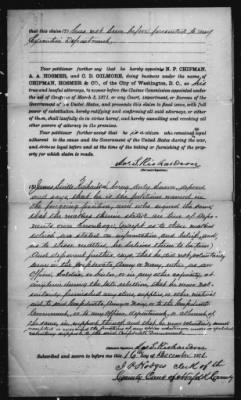 that this claim (²) has not been before presented to any
Executive Department
Your petitioner further say that he hereby appoint N. P. CHIPMAN,
A. A. HOSMER, and C. D. GILMORE, doing business under the name of,
CHIPMAN, HOSMER & CO., of the City of Washington, D. C., as his
true and lawful attorneys, to appear before the Claims Commission appointed under
the Act of Congress of March 3, 1871, or any Court, Department, or Bureau of the
Government of the United States, and prosecute this claim to final issue, with full
power of substitution, hereby ratifying and confirming all said attorneys, or either
of them, shall lawfully do in virtue hereof, and hereby annulling and revoking all
other powers of attorney in the premises.
Your petitioner further say that he is a citizen who remained loyal
adherent to the cause and the Government of the United States during the war,
and was so loyal before and at the time of the taking or furnishing of the property
for which claim is made.
Jas. S. Richardson
James Richardson being duly sworn, deposes
and says that he is the petitioner named in
the foregoing petition, and who signed the same
that the matters therein stated are true of
own knowledge, except as to those matters
which are stated on information and belief, and
as to those matters, he believes them to be true
And deponent further says that he did not voluntarily
serve in the Confederate Army or Navy, either as an
Officer, Soldier or Sailor, or in any other capacity, at
any time during the late rebellion, that he never
furnished any stores, supplies, or other material
aid to said Confederate Army or Navy, or to the Confederate
Government, or to any officer, department, or adherent of
the same in support thereof, and that he never voluntarily
Jas. S. Richardson
Subscribed and sworn to before me this 16 day of December 1871
Clerk of the
County Court of Norfolk County